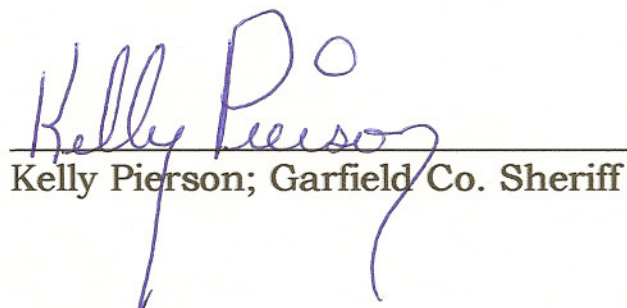 Kelly Pierson
Kelly Pierson; Garfield Co. Sheriff